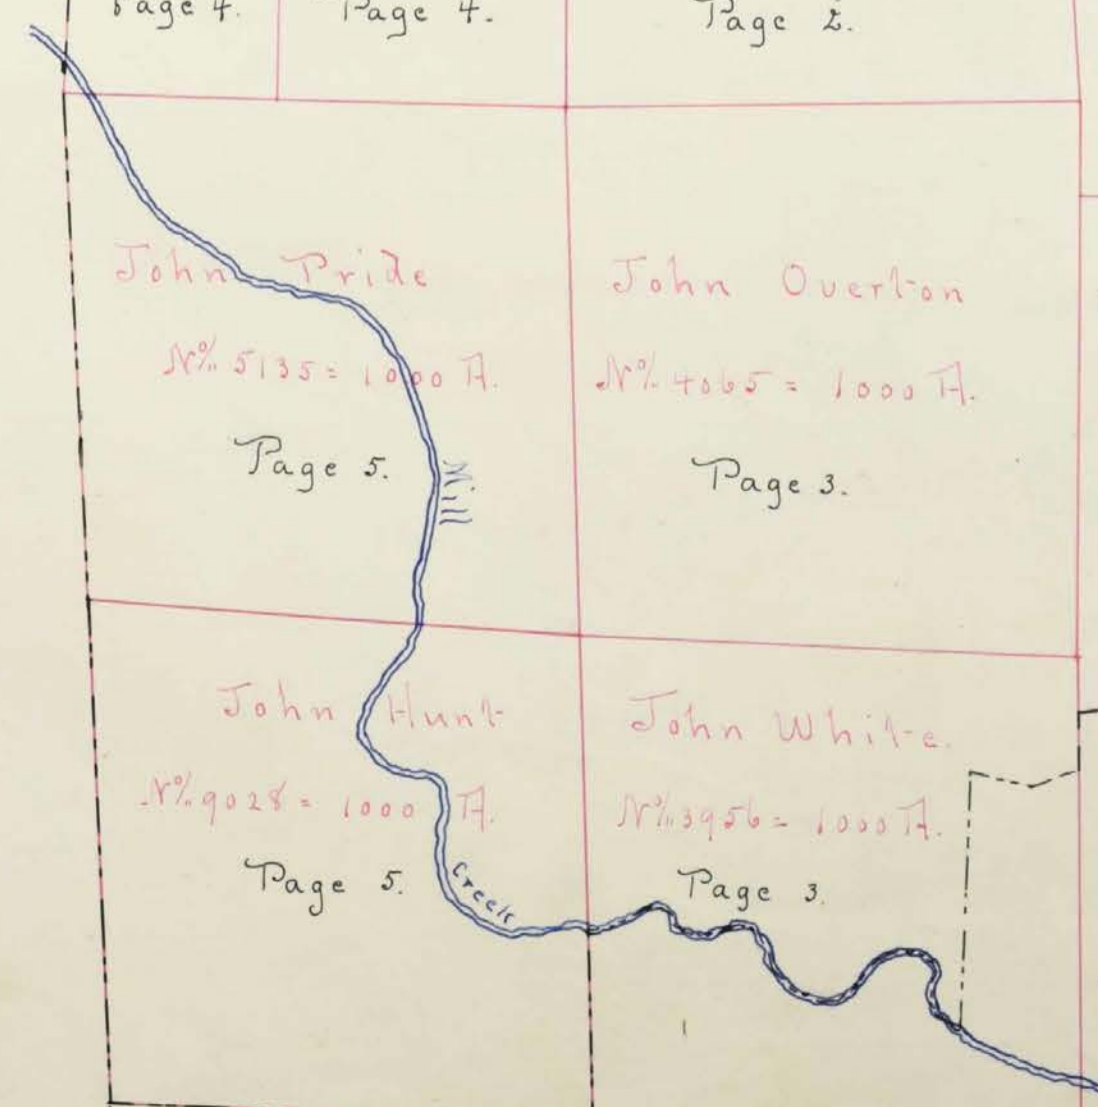 Page 4.
Page 4.
Page 2.
John Pride
No. 5135 = 1000 A.
Page 5.
Mill
John Overton
No. 4065 = 1000 A.
Page 3.
John Hunt
No. 9028 = 1000 A.
Page 5.
Creek
John White.
No. 3956 = 1000 A.
Page 3.